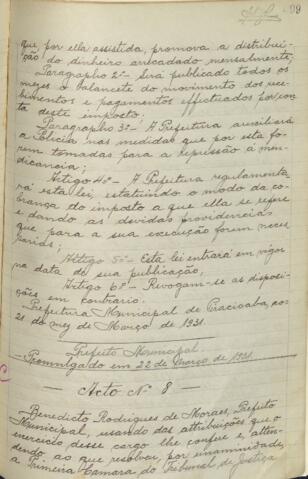 99
que por ella assistida, promova a distribui-
ção do dinheiro arrecadado mensalmente;
Paragrapho 2º - Será publicado todos os
mezes o balancete do movimento dos rece-
bimentos e pagamentos effectuados por con-
ta deste imposto;
Paragrapho 3º - A Prefeitura auxiliará
a Policia nas medidas que por esta fo-
rem tomadas para a repressão á men-
dicancia;
Artigo 4º - A Prefeitura regulamenta-
rá esta lei, estatuindo o modo da co-
brança do imposto a que ella se refere
e dando as devidas providencias
que para a sua execução forem neces-
sarias;
Artigo 5º - Esta lei entrará em vigor
na data de sua publicação;
Artigo 6º - Revogam-se as disposi-
ções em contrario.
Prefeitura Municipal de Piracicaba, aos
21 do mez de Março de 1931.
Prefeito Municipal
Promulgado em 22 de Março de 1931
Acto Nº 8
Benedicto Rodrigues de Moraes, Prefeito
Municipal, usando das attribuições que o
exercicio deste cargo lhe confere e, atten-
dendo ao que resolveu, por unanimidade,
a Primeira Camara do Tribunal de Justiça